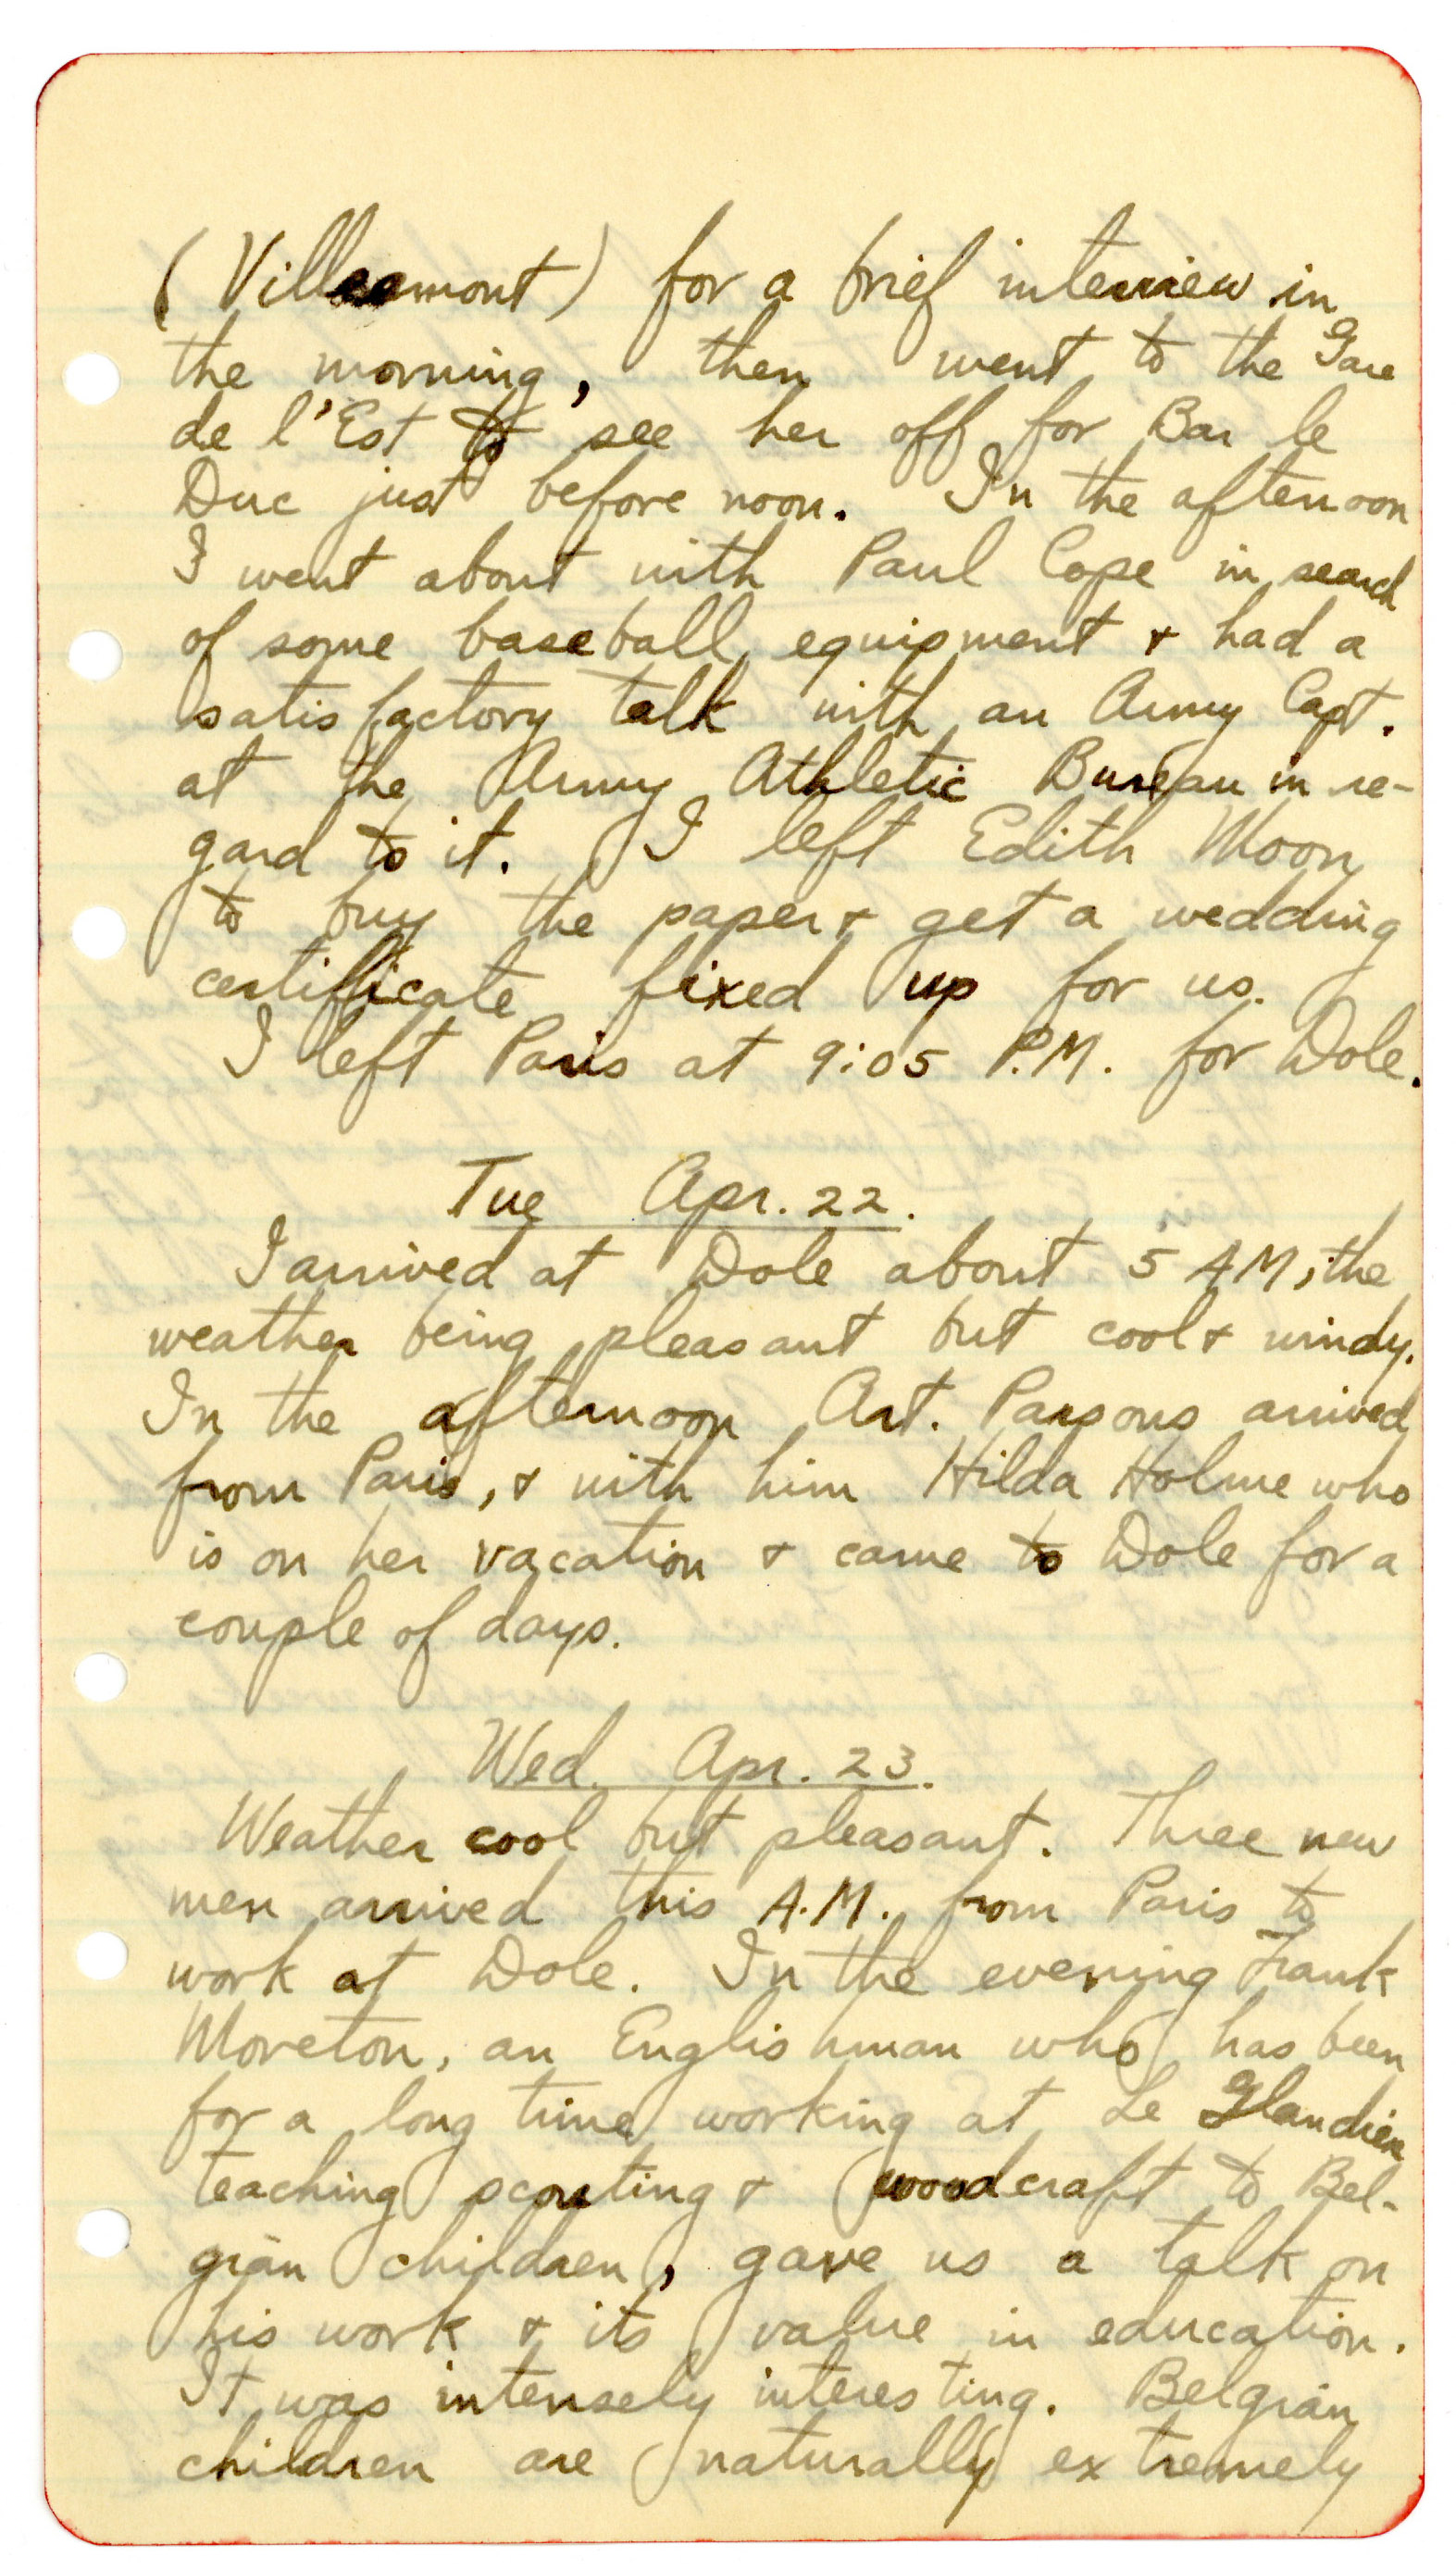 ( Villeemont ) for a brief interview in
the morning, then went to the Gare
de l'Est to see her off for Bar le
Duc just before noon. In the afternoon
I went about with Paul Cope in search
of some baseball equipment + had a
satisfactory talk with an Army Capt.
at the Army Athletic Bureau in re-
gard to it. I left Edith Moon
to buy the paper + get a wedding
certificate fixed up for us.
I left Paris at 9:05 P.M. for Dole.
Tue Apr. 22.
I arrived at Dole about 5 AM, the
weather being pleasant but cool + windy.
In the afternoon Art. Parsons arrived
from Paris, + with him Hilda Holme who
is on her vacation + came to Dole for a
couple of days.
Wed. Apr. 23.
Weather cool but pleasant. Three new
men arrived this A.M. from Paris to
work at Dole. In the evening Frank
Moreton, an Englishman who has been
for a long time working at Le Glandier
teaching scouting + woodcraft to Bel-
gian children, gave us a talk on
his work + its value in education.
It was intensely interesting. Belgian
children are naturally extremely